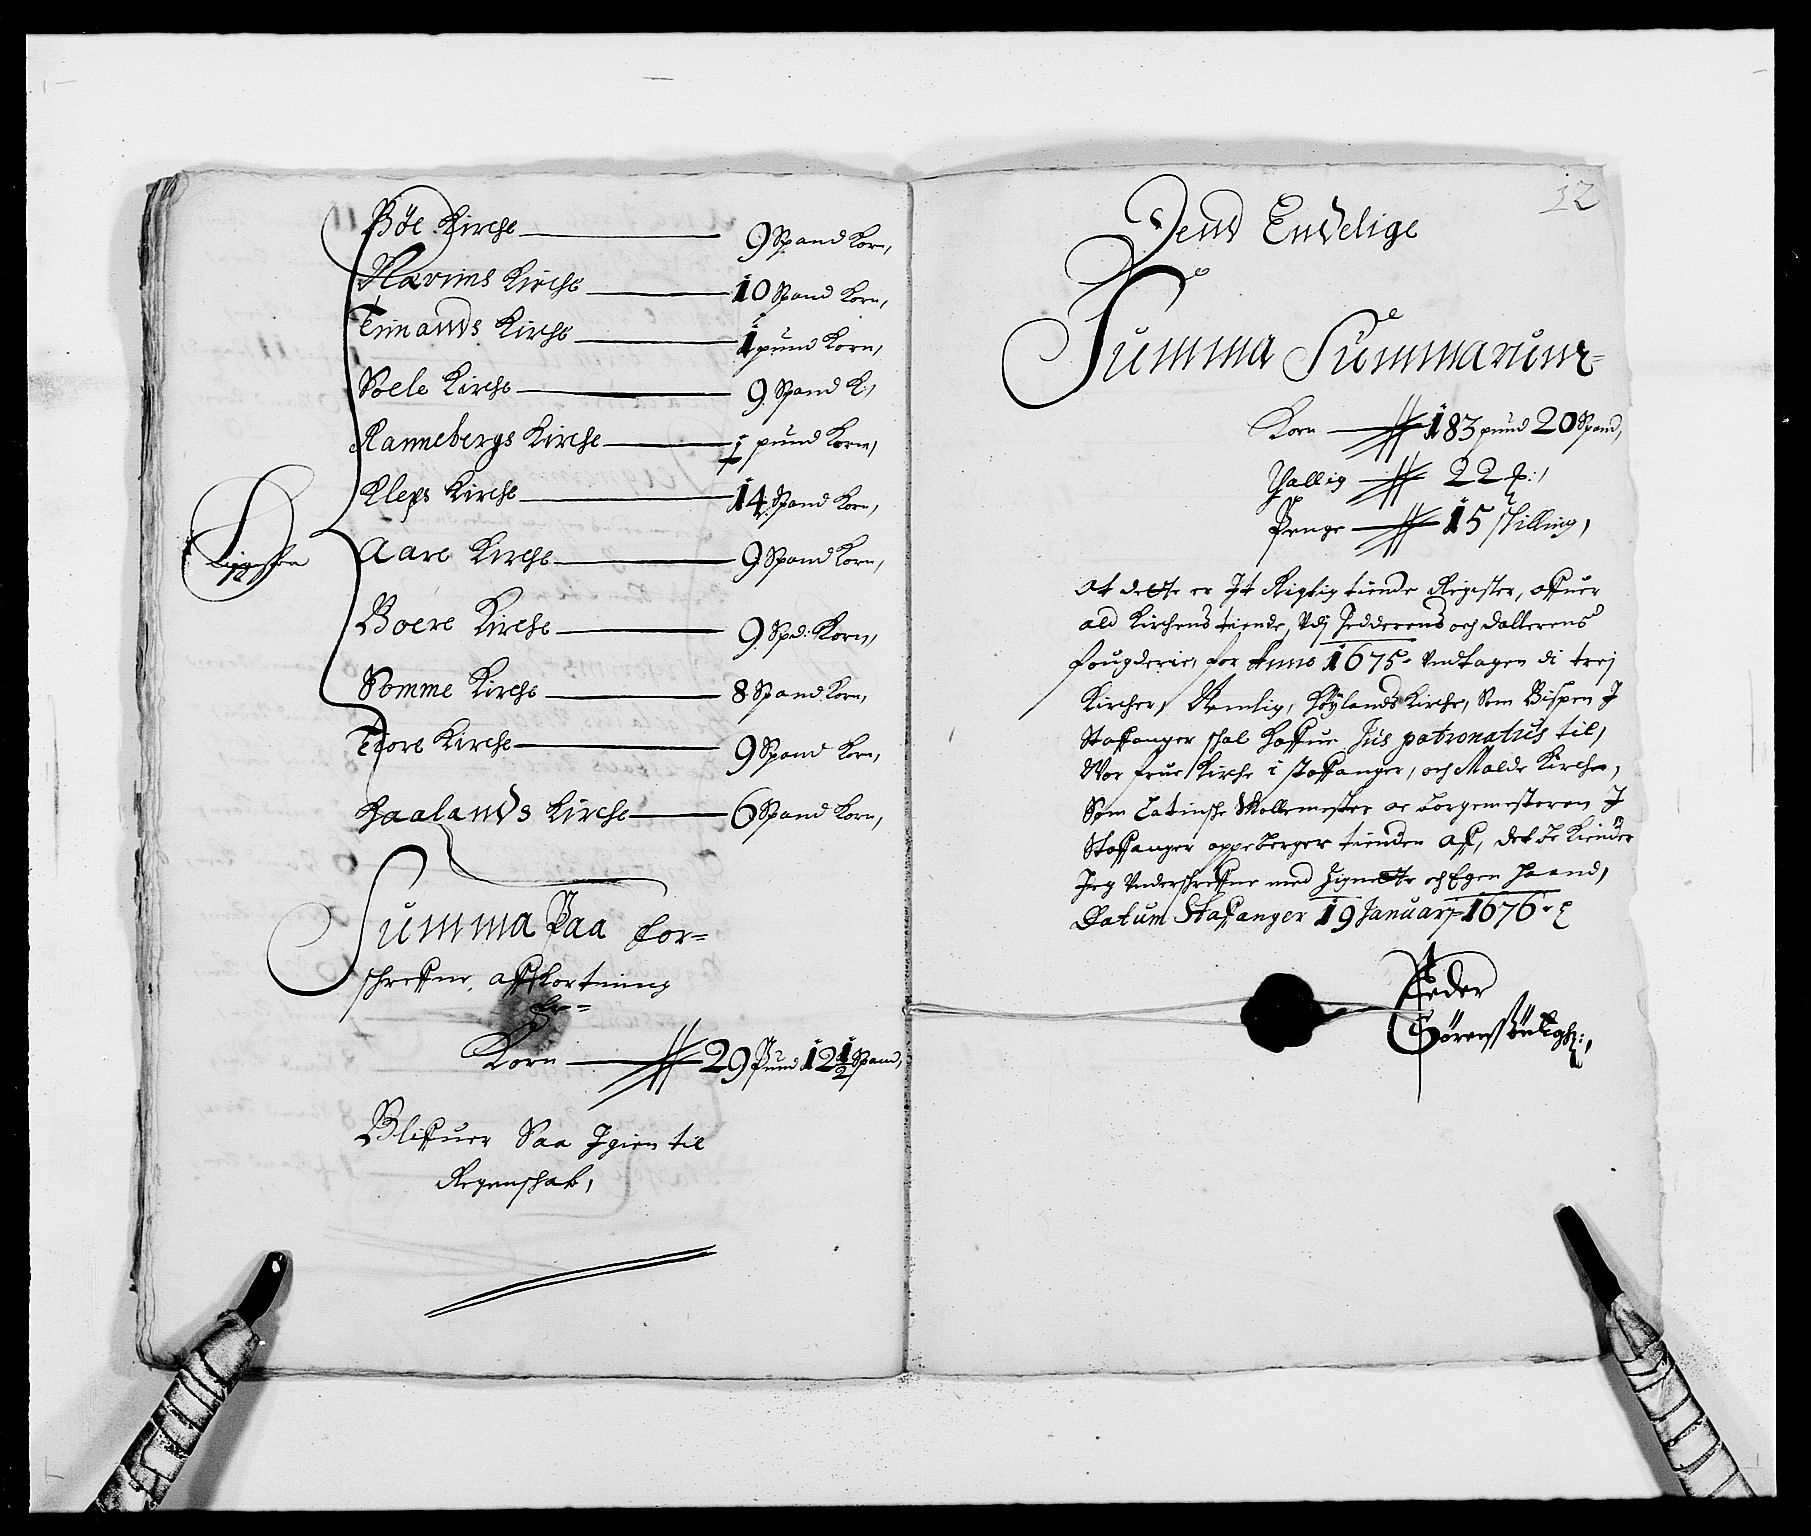 Böe Kirche 9 Spand Korn,
Narims Kirche 10 Spand Korn,
Timands Kirche 1 pund Korn,
Soele Kirche 9 Spand K:,
Rannebergs Kirche 1 pund Korn,
Kleps Kirche 14 Spand Korn,
Aare Kirche 9 Spand Korn,
Boere Kirche 9 Spd: Korn,
Somme Kirche 8 Spand Korn,
Tiore Kirche 9 Spand Korn,
Haalands Kirche 6 Spand Korn,
Summa Paa for=
schreffne affkortning
Er=
Korn 29 Pund 12 1/2 Spand,
Bliffuer Saa Igien til
Regenschab,
12
Dend Endelige
Summa Summarum=
Korn 183 pund 20 Spand,
Tallig 22 p:,
Penge 15 skilling,
At dette er It Rigtig tiende Register, offuer
ald Kirchens tiende, Vdj Jedderens och Dallerens
fougderie, for Anno 1675. Vndtagen di trej
Kircher, Nemlig, Höylands Kirche, Som Bispen J
Staffanger schal haffue Jus patronatus til,
Wor frue Kirche i Staffanger, och Malde Kirche,
Som Latinsche Skollemester oc borgemesteren J
Staffanger oppeberger tienden aff, det be Kiender
Jeg Vnderschreffne med Zignette och Egen Haand,
Datum Staffanger 19 Januarj 1676
Peder